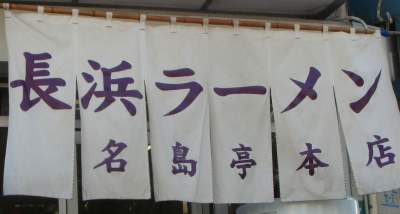 長浜ラーメン
名島亭本店